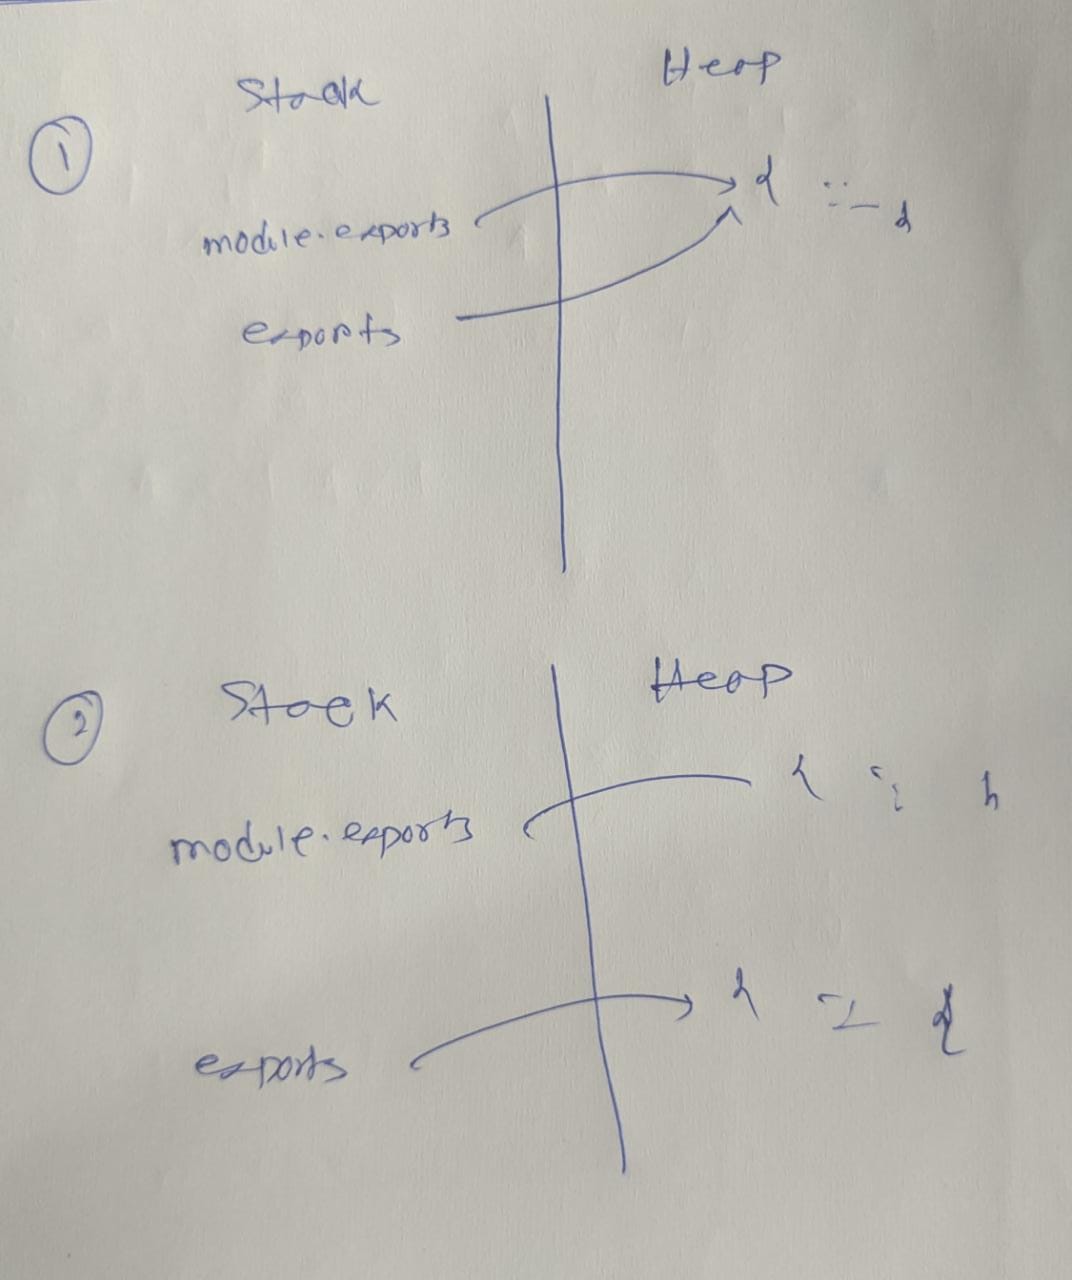 Stack
Heap
1
module.exports
exports
Stack
Heap
2
module.exports
exports